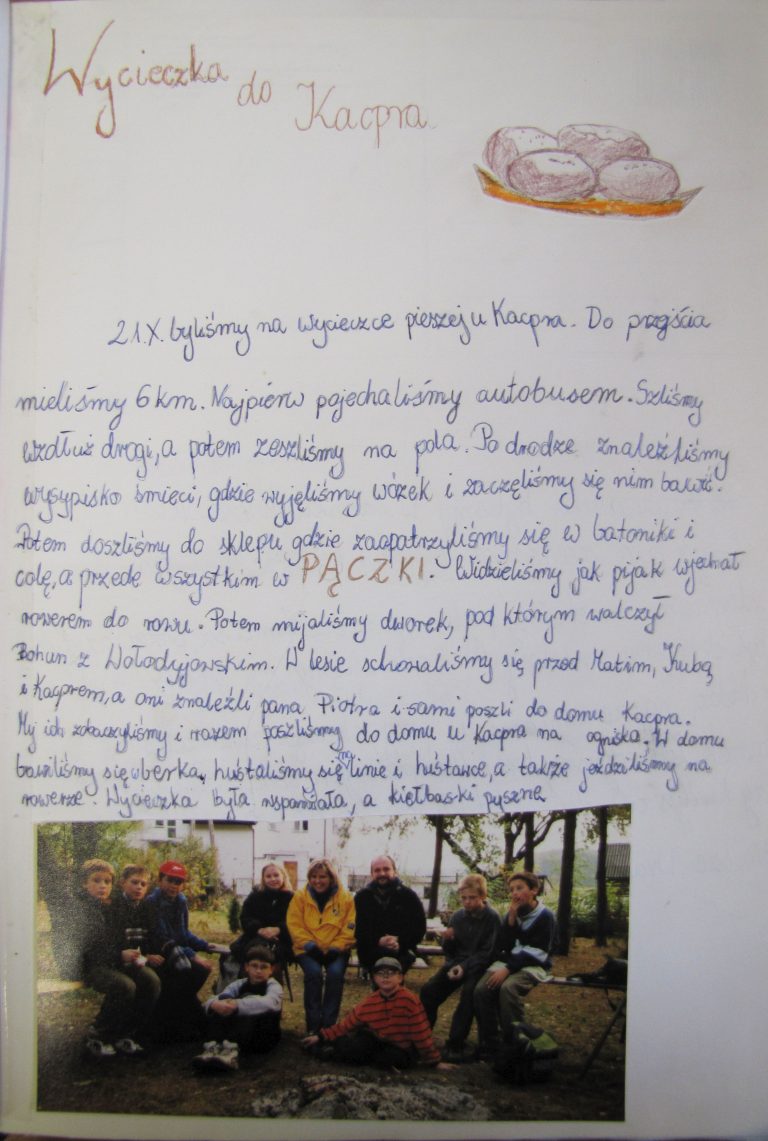 Wycieczka do Kacpra.
21.X. byliśmy na wycieczce pieszej u Kacpra. Do przejścia
mieliśmy 6 km. Najpierw pojechaliśmy autobusem. Szliśmy
wzdłuż drogi, a potem zeszliśmy na pola. Po drodze znaleźliśmy
wysypisko śmieci, gdzie wyjęliśmy wózek i zaczęliśmy się nim bawić.
Potem doszliśmy do sklepu gdzie zaopatrzyliśmy się w batoniki i
colę, a przede wszystkim w PĄCZKI. Widzieliśmy jak pijak wjechał
rowerem do rowu. Potem mijaliśmy dworek, pod którym walczył
Bohun z Wołodyjowskim. W lesie schowaliśmy się przed Matim, Kubą
i Kacprem, a oni znaleźli pana Piotra i sami poszli do domu Kacpra.
My ich zobaczyliśmy i razem poszliśmy do domu u Kacpra na ogniska. W domu
bawiliśmy się w berka, huśtaliśmy się na linie i huśtawce, a także jeździliśmy na
rowerze. Wycieczka była wspaniała, a kiełbaski pyszne